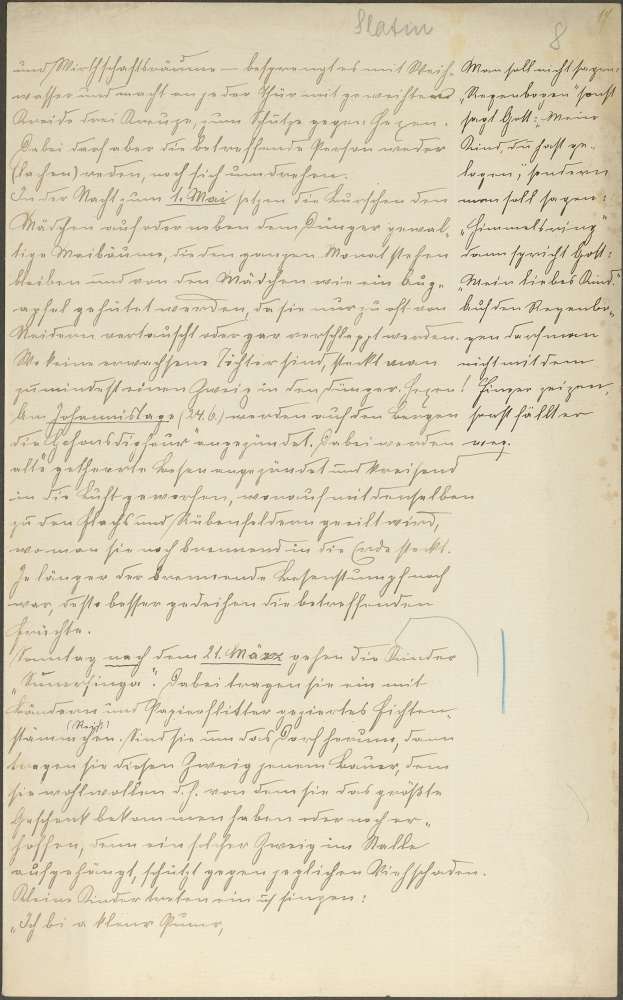 Slatin
8
und Wirthschaftsräume – besprengt es mit Weih-
wasser und macht an jeder Thür mit geweihter
Kreide drei Kreuze, zum Schutze gegen Hexen.
Dabei darf aber die betreffende Person weder
(lachen) reden, noch sich umdrehen.
In der Nacht zum 1. Mai setzen die Burschen den
Mädchen auf oder neben dem Dünger gewal-
tige Maibäume, die den ganzen Monat stehen
bleiben und von den Mädchen wie ein Aug-
apfel gehütet werden, da sie nur zu oft von
Neidern vertauscht oder gar verschleppt werden.
Wo keine erwachsene Töchter sind, steckt man
zumindest einen Zweig in den Dünger. Hexen!
Am Johannistage (24.6.) werden auf den Bergen
die "Gehonsdigfeur" angezündet. Dabei werden
alte getheerte Besen angezündet und kreisend
in die Luft geworfen, worauf mit denselben
zu den Flachs und Rübenfeldern geeilt wird,
wo man sie noch brennend in die Erde steckt.
Je länger der brennende Besenstumpf noch
war, desto besser gedeihen die betreffenden
Früchte.
Sonntag nach dem 21. März gehen die Kinder
"Sumersinga". Dabei tragen sie ein mit
Bändern und Papierflitter geziertes Fichten-
(Reis!)
stämmchen. Sind sie um das Dorf herum, dann
tragen sie diesen Zweig jenem Bauer, dem
sie wohlwollen d.h. von dem sie das größte
Geschenk bekommen haben oder noch er-
hoffen, denn ein solcher Zweig im Stalle
aufgehängt, schützt gegen jeglichen Viehschaden.
Kleine Kinder treten ein u. singen:
"Ich bi a klenr Pumr,
Man soll nicht sagen:
"Regenbogen" sonst
sagt Gott: "Mein
Kind, du hast ge-
logen", sondern
man soll sagen:
"Himmelsring"
dann spricht Gott:
"Mein liebes Kind."
Auf den Regenbo-
gen darf man
nicht mit dem
Finger zeigen,
sonst fällt er
weg.